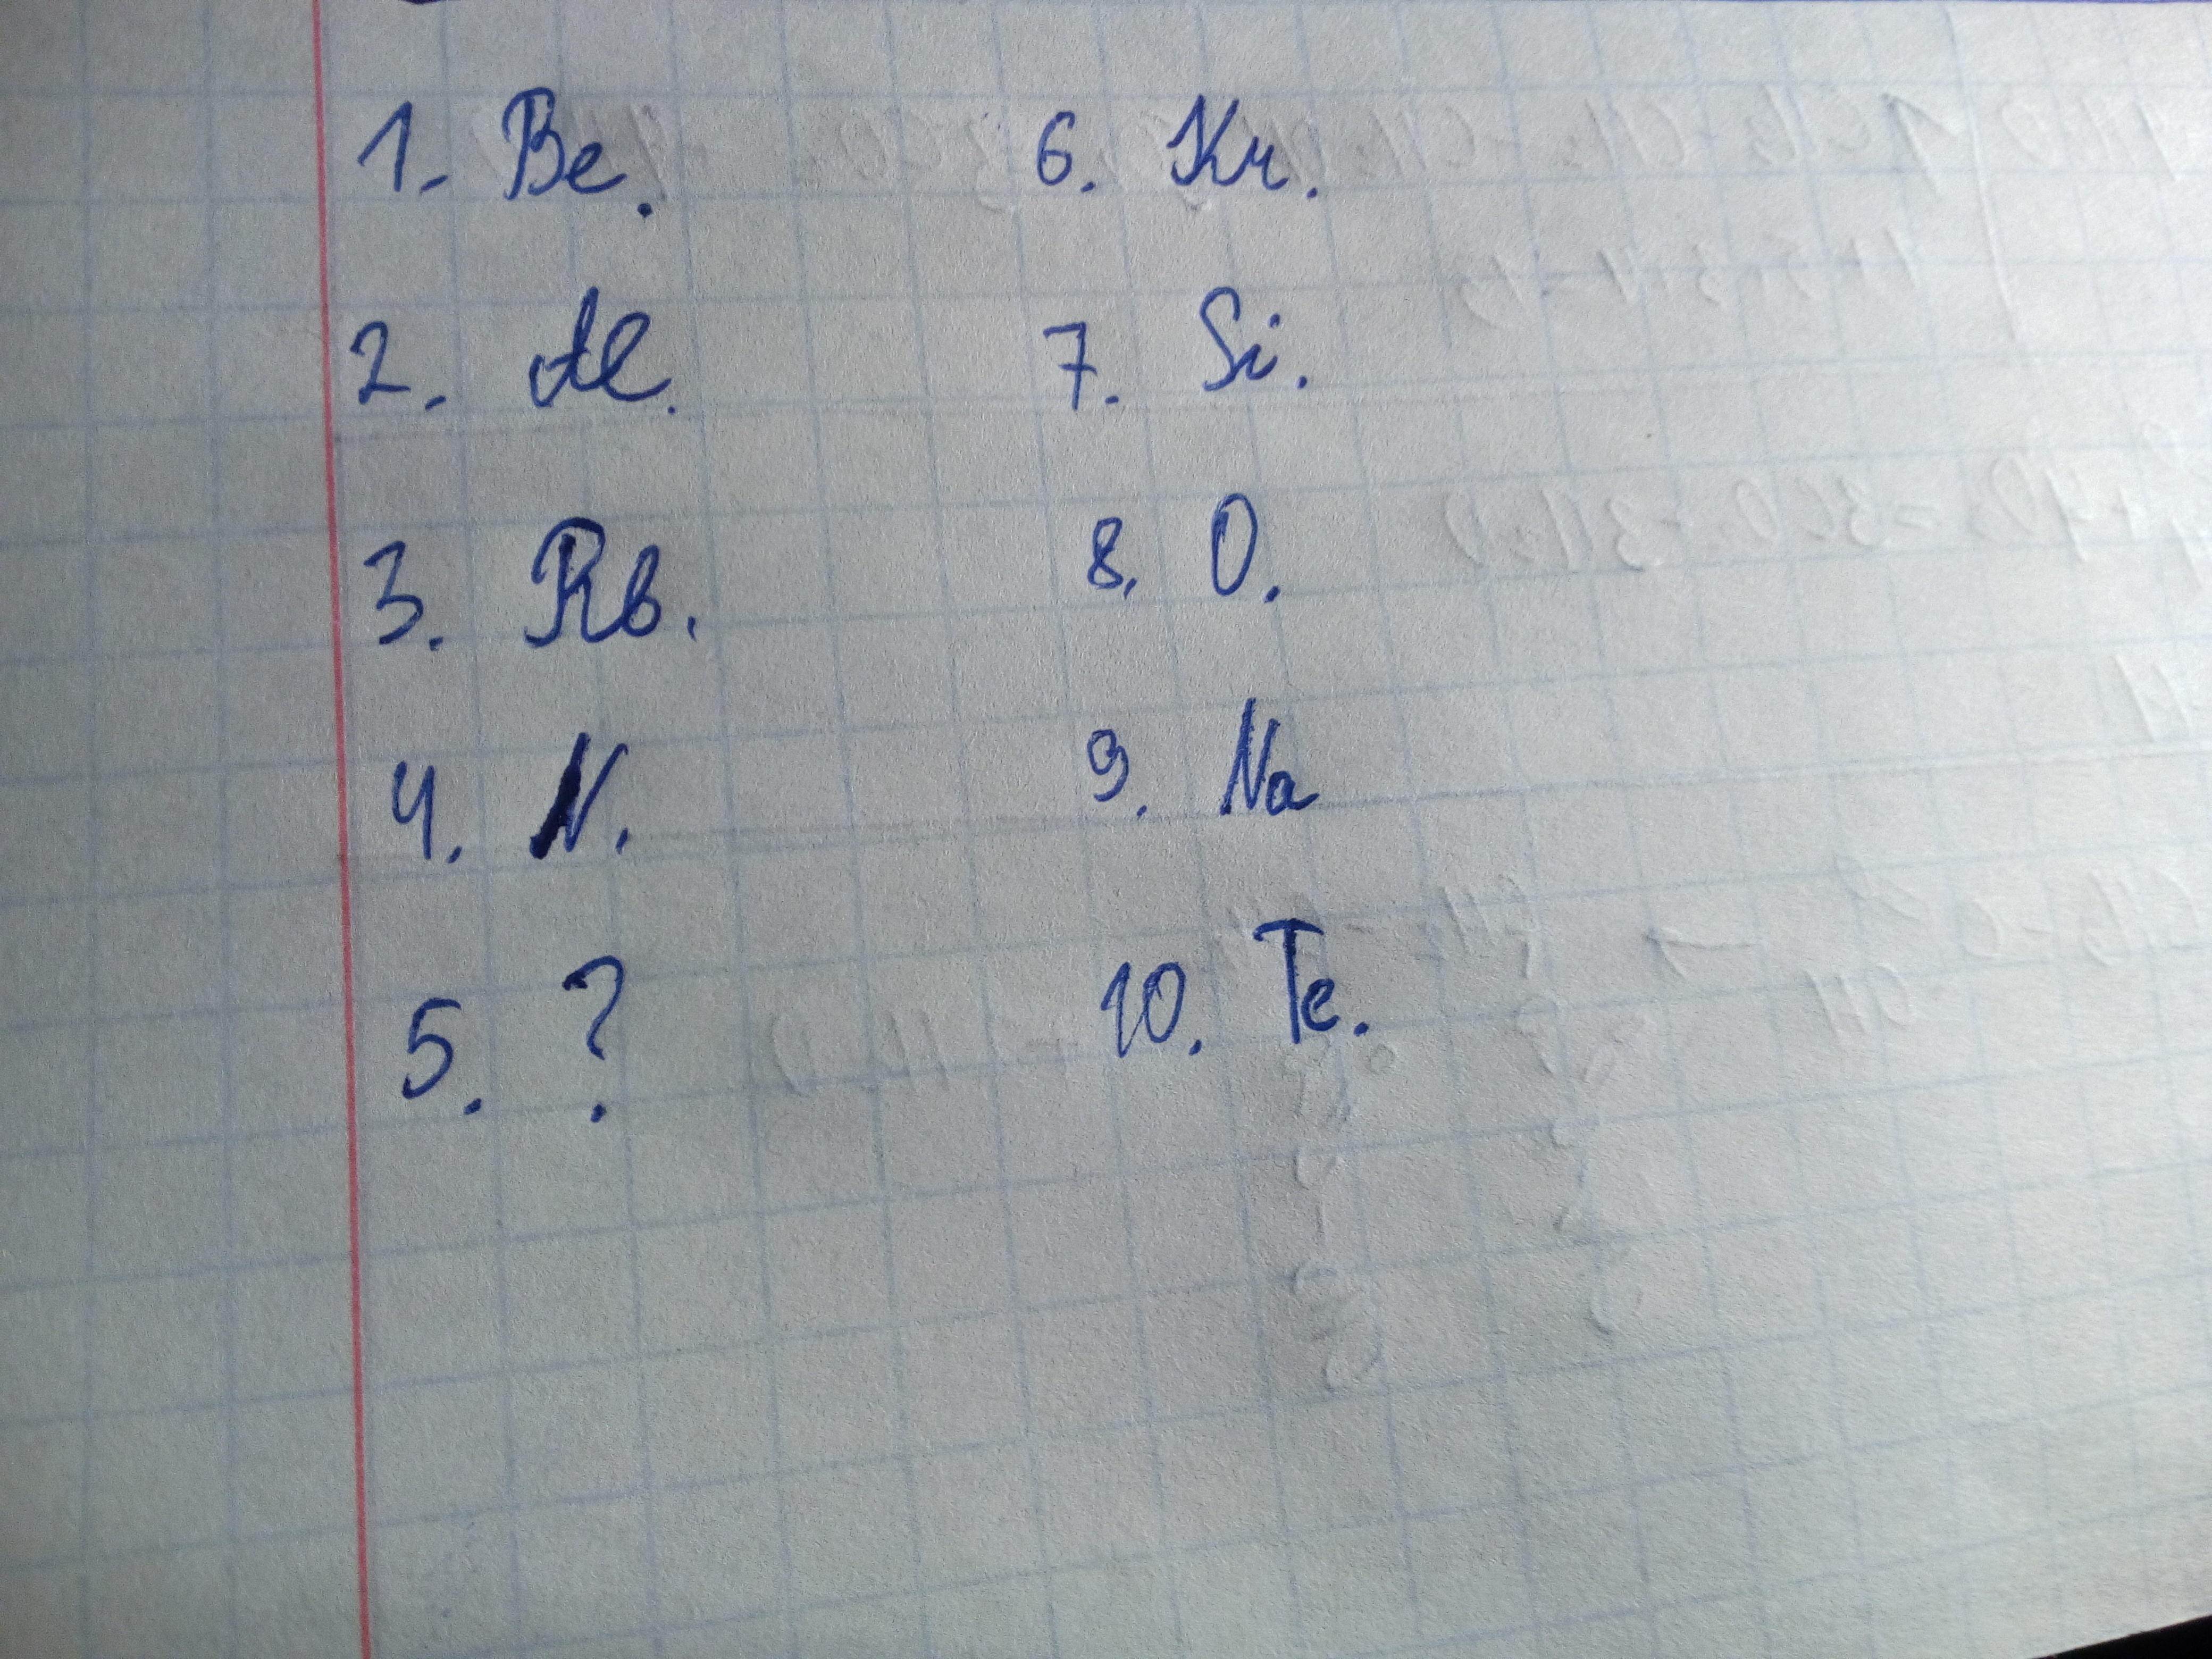 1. Be.
2. Al.
3. Rb.
4. N.
5. ?
6. Kr.
7. Si.
8. O.
9. Na
10. Te.